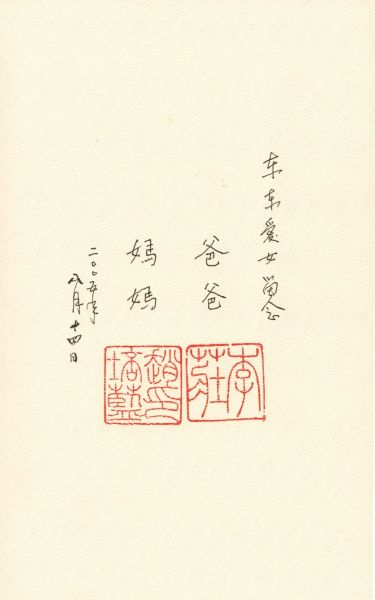 东东爱女留念
爸爸
媽媽
二〇〇五年
八月十四日
李莊
趙印